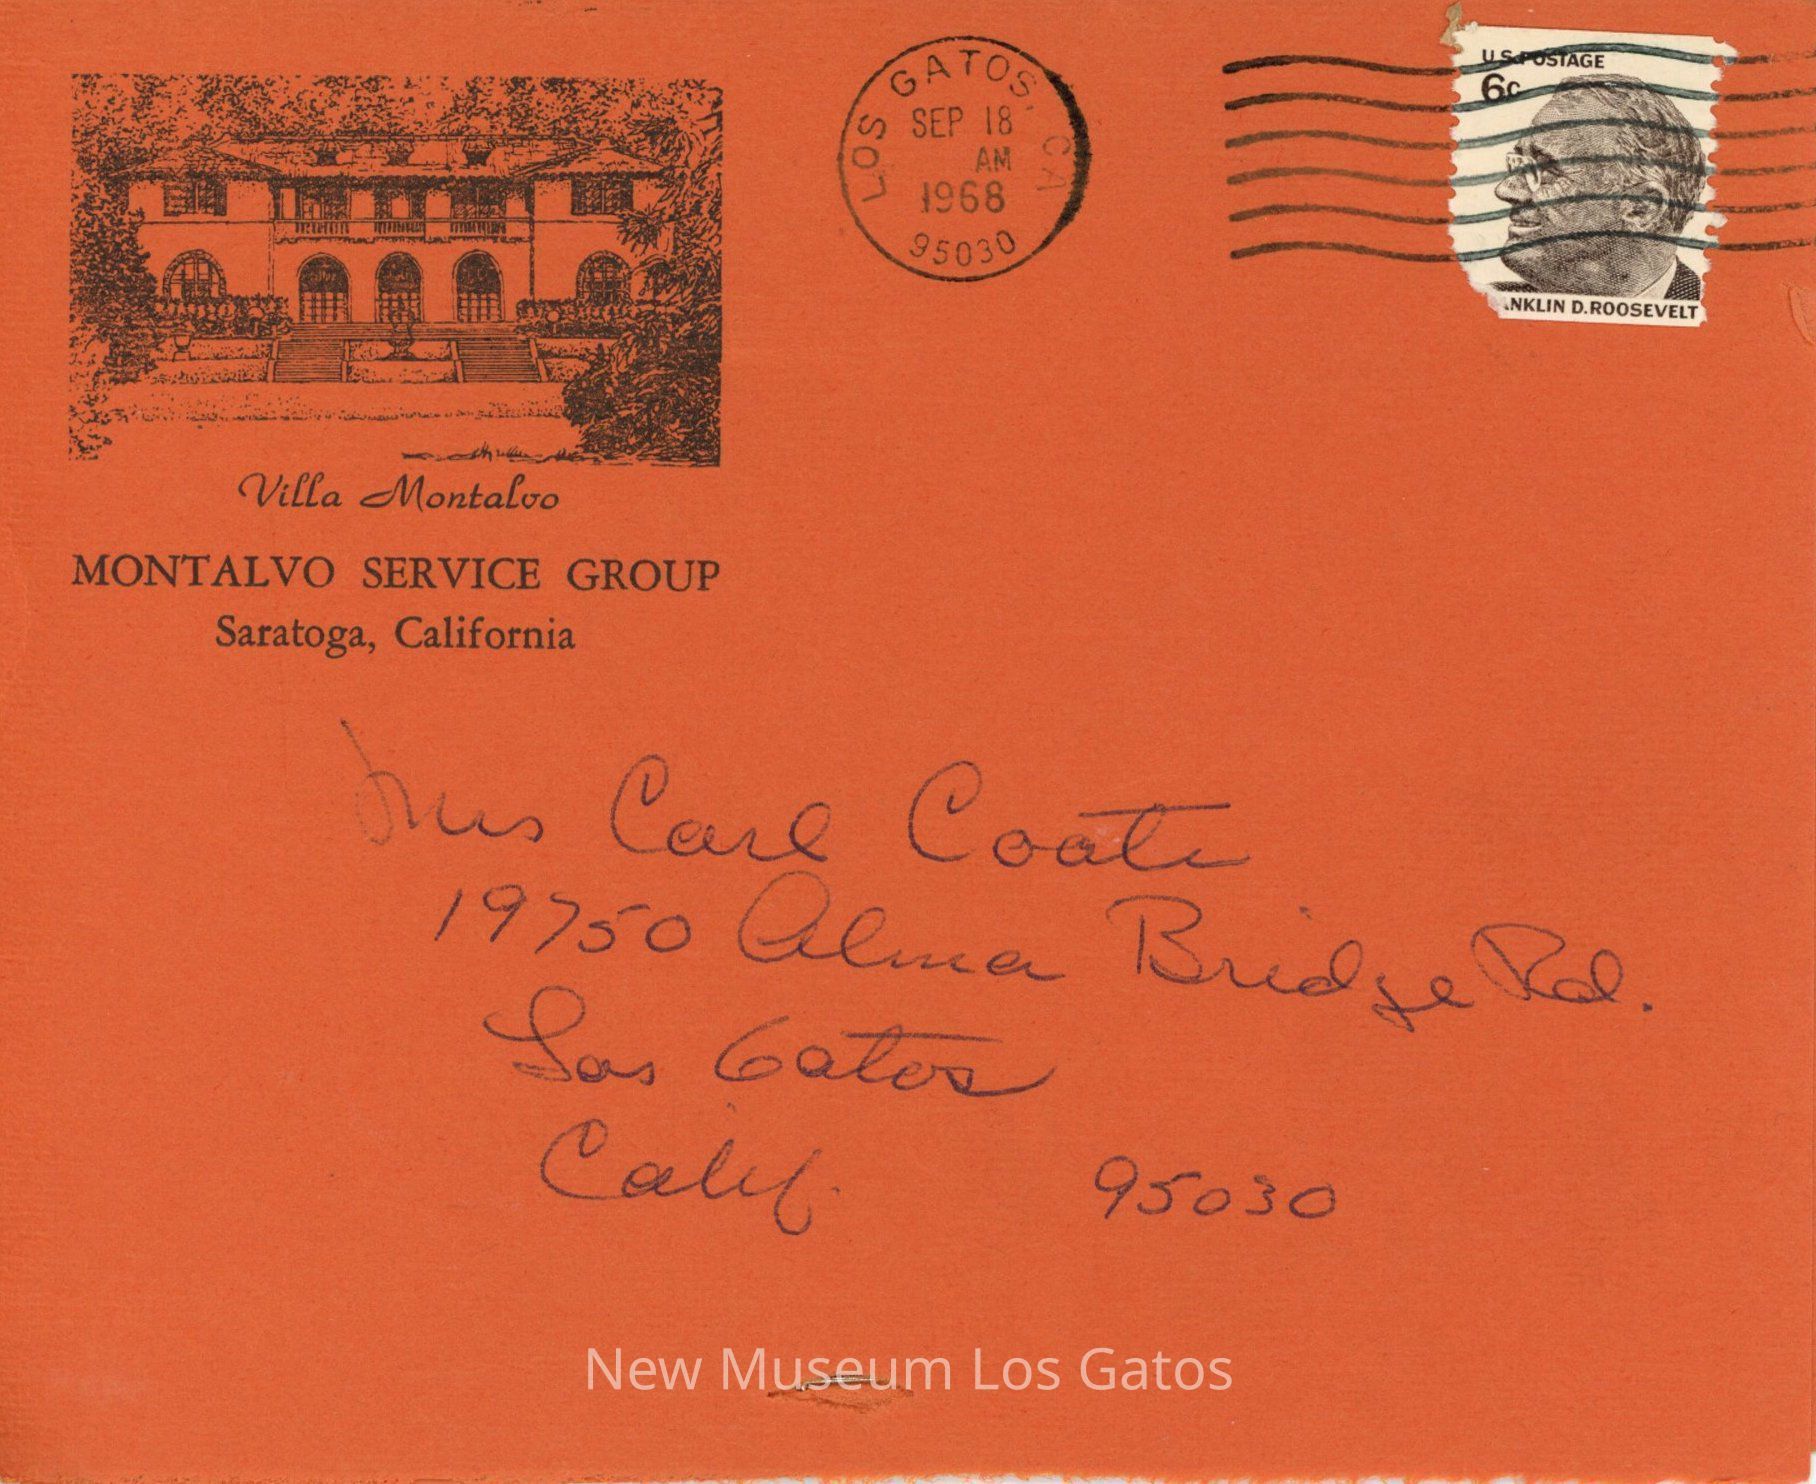 Villa Montalvo
MONTALVO SERVICE GROUP
Saratoga, California
LOS GATOS, CA
SEP 18
AM
1968
95030
U.S. POSTAGE
6c
ANKLIN D. ROOSEVELT
Mrs Carl Coate
19750 Alma Bridge Rd.
Los Gatos
Calif. 95030
New Museum Los Gatos